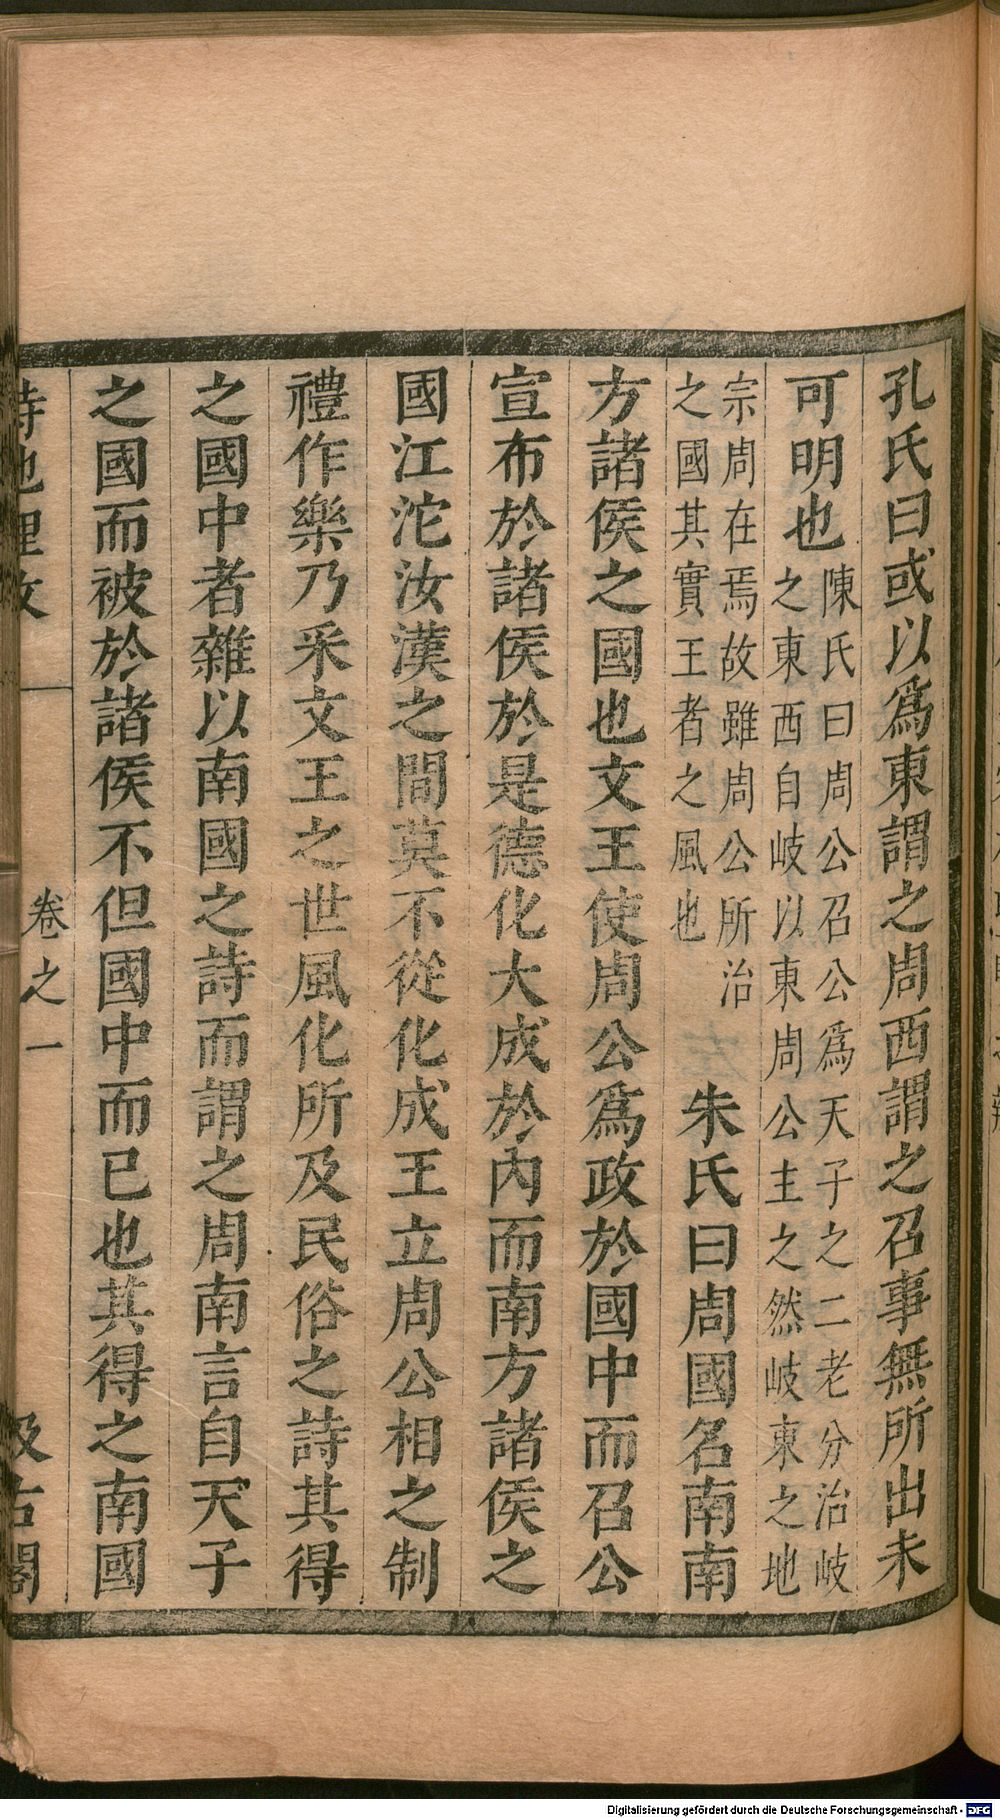 孔氏曰或以爲東謂之周西謂之召事無所出未
可明也陳氏曰周公召公爲天子之二老分治岐
之東西自岐以東周公主之然岐東之地
宗周在焉故雖周公所治
之國其實王者之風也
朱氏曰周國名南南
方諸侯之國也文王使周公爲政於國中而召公
宣布於諸侯於是德化大成於內而南方諸侯之
國江沱汝漢之間莫不從化成王立周公相之制
禮作樂乃采文王之世風化所及民俗之詩其得
之國中者雜以南國之詩而謂之周南言自天子
之國而被於諸侯不但國中而已也其得之南國
詩地理攷 卷之一 汲古閣
Digitalisierung gefördert durch die Deutsche Forschungsgemeinschaft - DFG